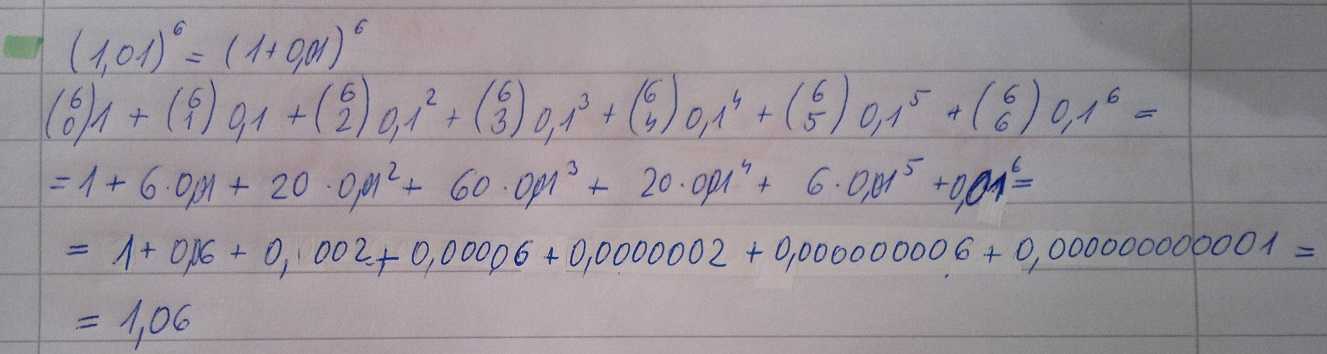 (1,01)⁶ = (1+0,01)⁶
(6 0)1 + (6 1) 0,1 + (6 2) 0,1² + (6 3) 0,1³ + (6 4) 0,1⁴ + (6 5) 0,1⁵ + (6 6) 0,1⁶ =
= 1 + 6·0,01 + 20·0,01² + 60·0,01³ + 20·0,01⁴ + 6·0,01⁵ + 0,01⁶ =
= 1 + 0,06 + 0,002 + 0,00006 + 0,0000002 + 0,000000006 + 0,000000000001 =
= 1,06